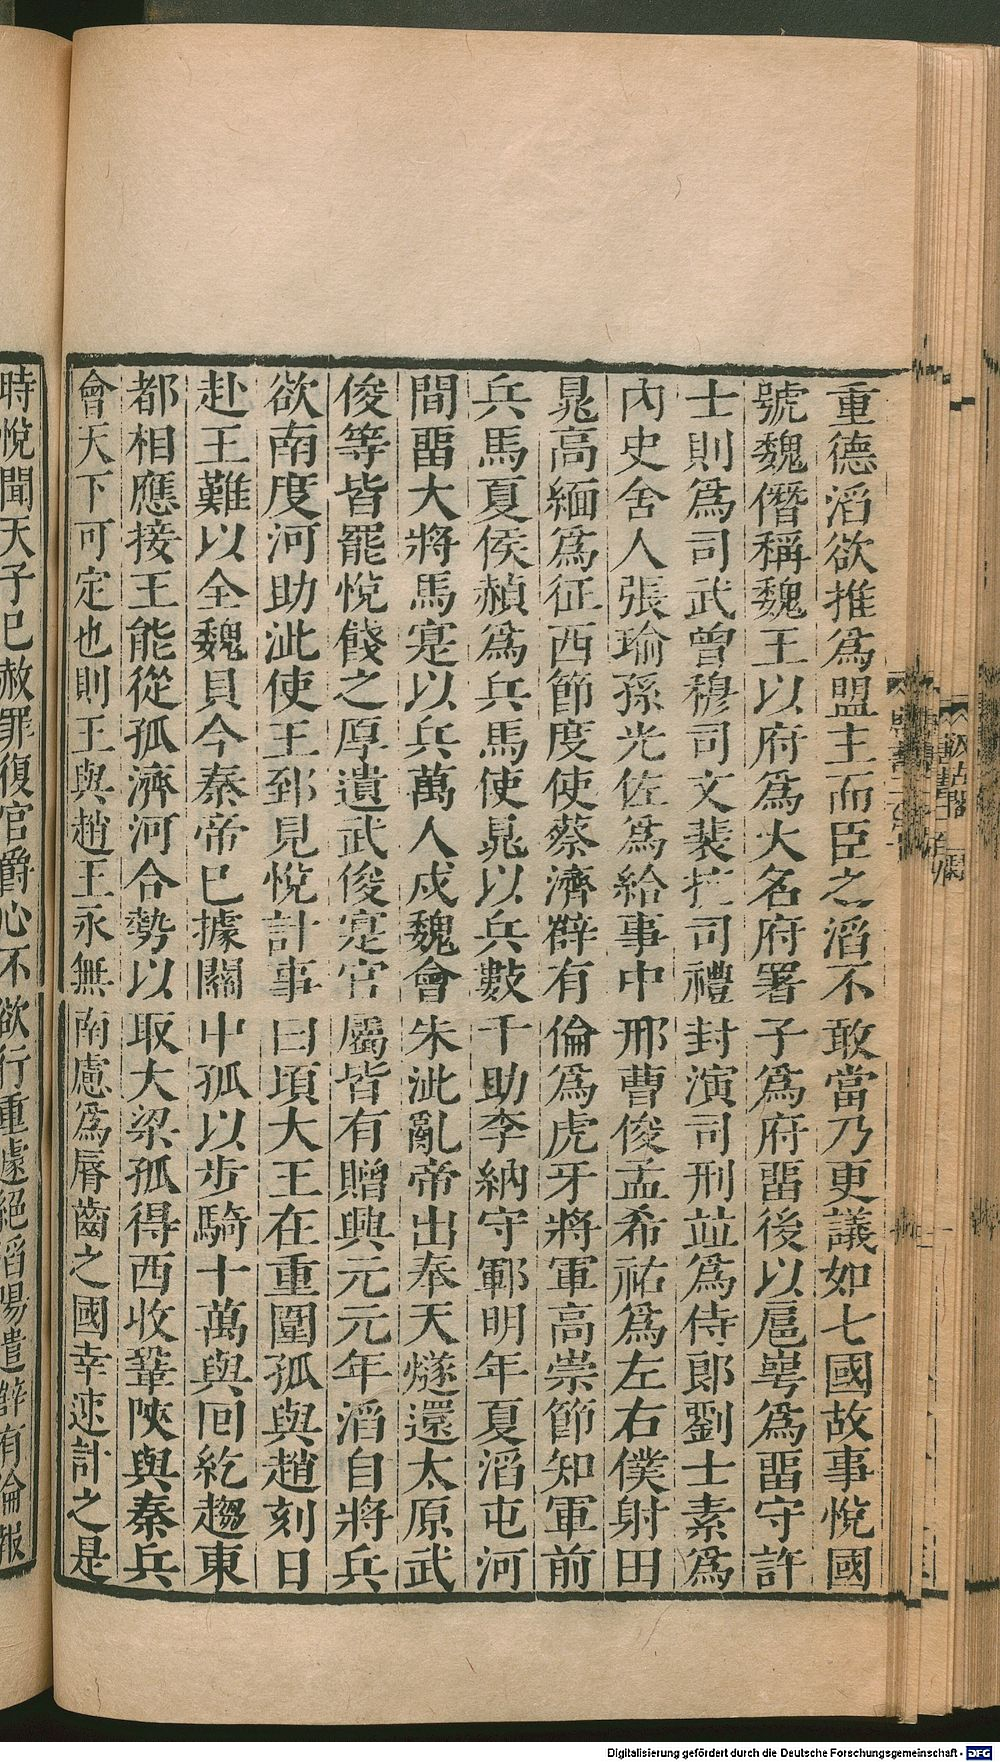 重德滔欲推爲盟主而臣之滔不敢當乃更議如七國故事悅國
號魏僭稱魏王以府爲大名府署子爲府畱後以扈崿爲畱守許
士則爲司武曾穆司文裴抗司禮封演司刑竝爲侍郎劉士素爲
內史舍人張瑜孫光佐爲給事中邢曹俊孟希祐爲左右僕射田
晁高緬爲征西節度使蔡濟薛有倫爲虎牙將軍高崇節知軍前
兵馬夏侯赬爲兵馬使晁以兵數千助李納守鄆明年夏滔屯河
間畱大將馬寔以兵萬人戍魏會朱泚亂帝出奉天燧還太原武
俊等皆罷悅餞之厚遺武俊寔官屬皆有贈興元元年滔自將兵
欲南度河助泚使王郅見悅計事曰頃大王在重圍孤與趙刻日
赴王難以全魏貝今秦帝已據關中孤以步騎十萬與回紇趨東
都相應接王能從孤濟河合勢以取大梁孤得西收鞏陝與秦兵
會天下可定也則王與趙王永無南慮爲脣齒之國幸速計之是
時悅聞天子已赦罪復官爵心不欲行重遽絕滔陽遣薛有倫報
Digitalisierung gefördert durch die Deutsche Forschungsgemeinschaft - DFG